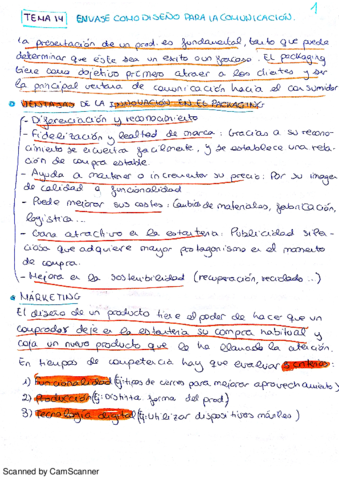 1
TEMA 14 ENVASE COMO DISEÑO PARA LA COMUNICACIÓN.
La presentación de un prod. es fundamental, tanto que puede
determinar que éste sea un éxito o un fracaso. El packaging
tiene como objetivo primero atraer a los clientes y ser
la principal ventana de comunicación hacia el consumidor
VENTAJAS DE LA INNOVACIÓN EN EL PACKAGING
- Diferenciación y reconocimiento
- Fidelización y lealtad de marca: Gracias a su recono-
cimiento se encuentra facilmente, y se establece una rela-
ción de compra estable.
- Ayuda a mantener o incrementar su precio: Por su imagen
de calidad o funcionalidad
- Puede mejorar sus costes: Cambio de materiales, fabricación,
logística...
- Gana atractivo en la estantería: Publicidad silen-
ciosa que adquiere mayor protagonismo en el momento
de compra.
- Mejora en la sostenibilidad (recuperación, reciclado...)
MARKETING
El diseño de un producto tiene el poder de hacer que un
comprador deje en la estantería su compra habitual y
coja un nuevo producto que le ha llamado la atención.
En tiempos de competencia hay que evaluar criterios:
1) Funcionalidad (Ej: tipos de cierres para mejorar aprovechamiento)
2) Producción (Ej: Distinta forma del prod)
3) Tecnología digital (Ej: Utilizar dispositivos móviles)
Scanned by CamScanner